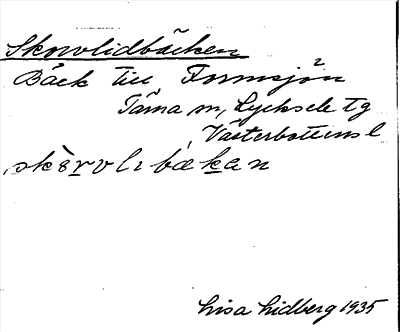 Skorvlidbäcken
Bäck till Formsjön
Tärna sn, Lycksele tg
Västerbottens l
skèrvlıbäkɐn
Lisa Lidberg 1935